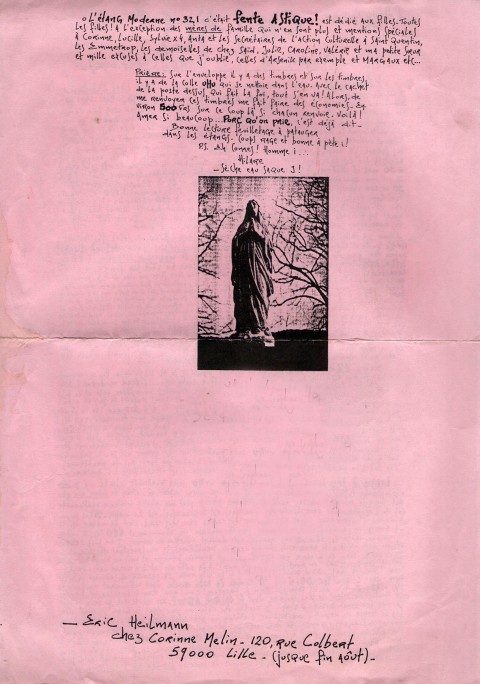 o L'étang Moderne no 32 ! c'était fente Astique ! est dédié aux filles. Toutes
les filles ! A l'exception des mères de famille qui n'en sont plus et mentions spéciales
à Corinne, Lucille, Sylvie x 4, Anita et les secrétaires de l'Action Culturelle à Saint Quentin,
les Emmetrop, les demoiselles de chez Saint, Julie, Caroline, Valérie et ma petite sœur
et mille excuses à celles que j'oublie, celles d'Arsenic par exemple et Margaux etc...
Prière : Sur l'enveloppe il y a des timbres et sur les timbres,
il y a de la colle UHU qui se nettoie dans l'eau. Avec le cachet
de la poste dessus, qui fait la foi, tout s'en va ! Alors, de
me renvoyer ces timbres me fait faire des économies. En
viron 500 Frs sur ce coup là si chacun renvoie. Voilà !
Amen si beaucoup... Porc qu'on prie, c'est déjà dit -
Bonne lecture feuilletage à patauger
dans les étangs. Coups rage et bonne à pète !
P.S. En Cornes ! Homme i...
Hilaire
_ Sèche eau saque 3 !
_ Eric Heilmann
chez Corinne Melin - 120, rue Colbert
59000 Lille - (jusque fin Août) -